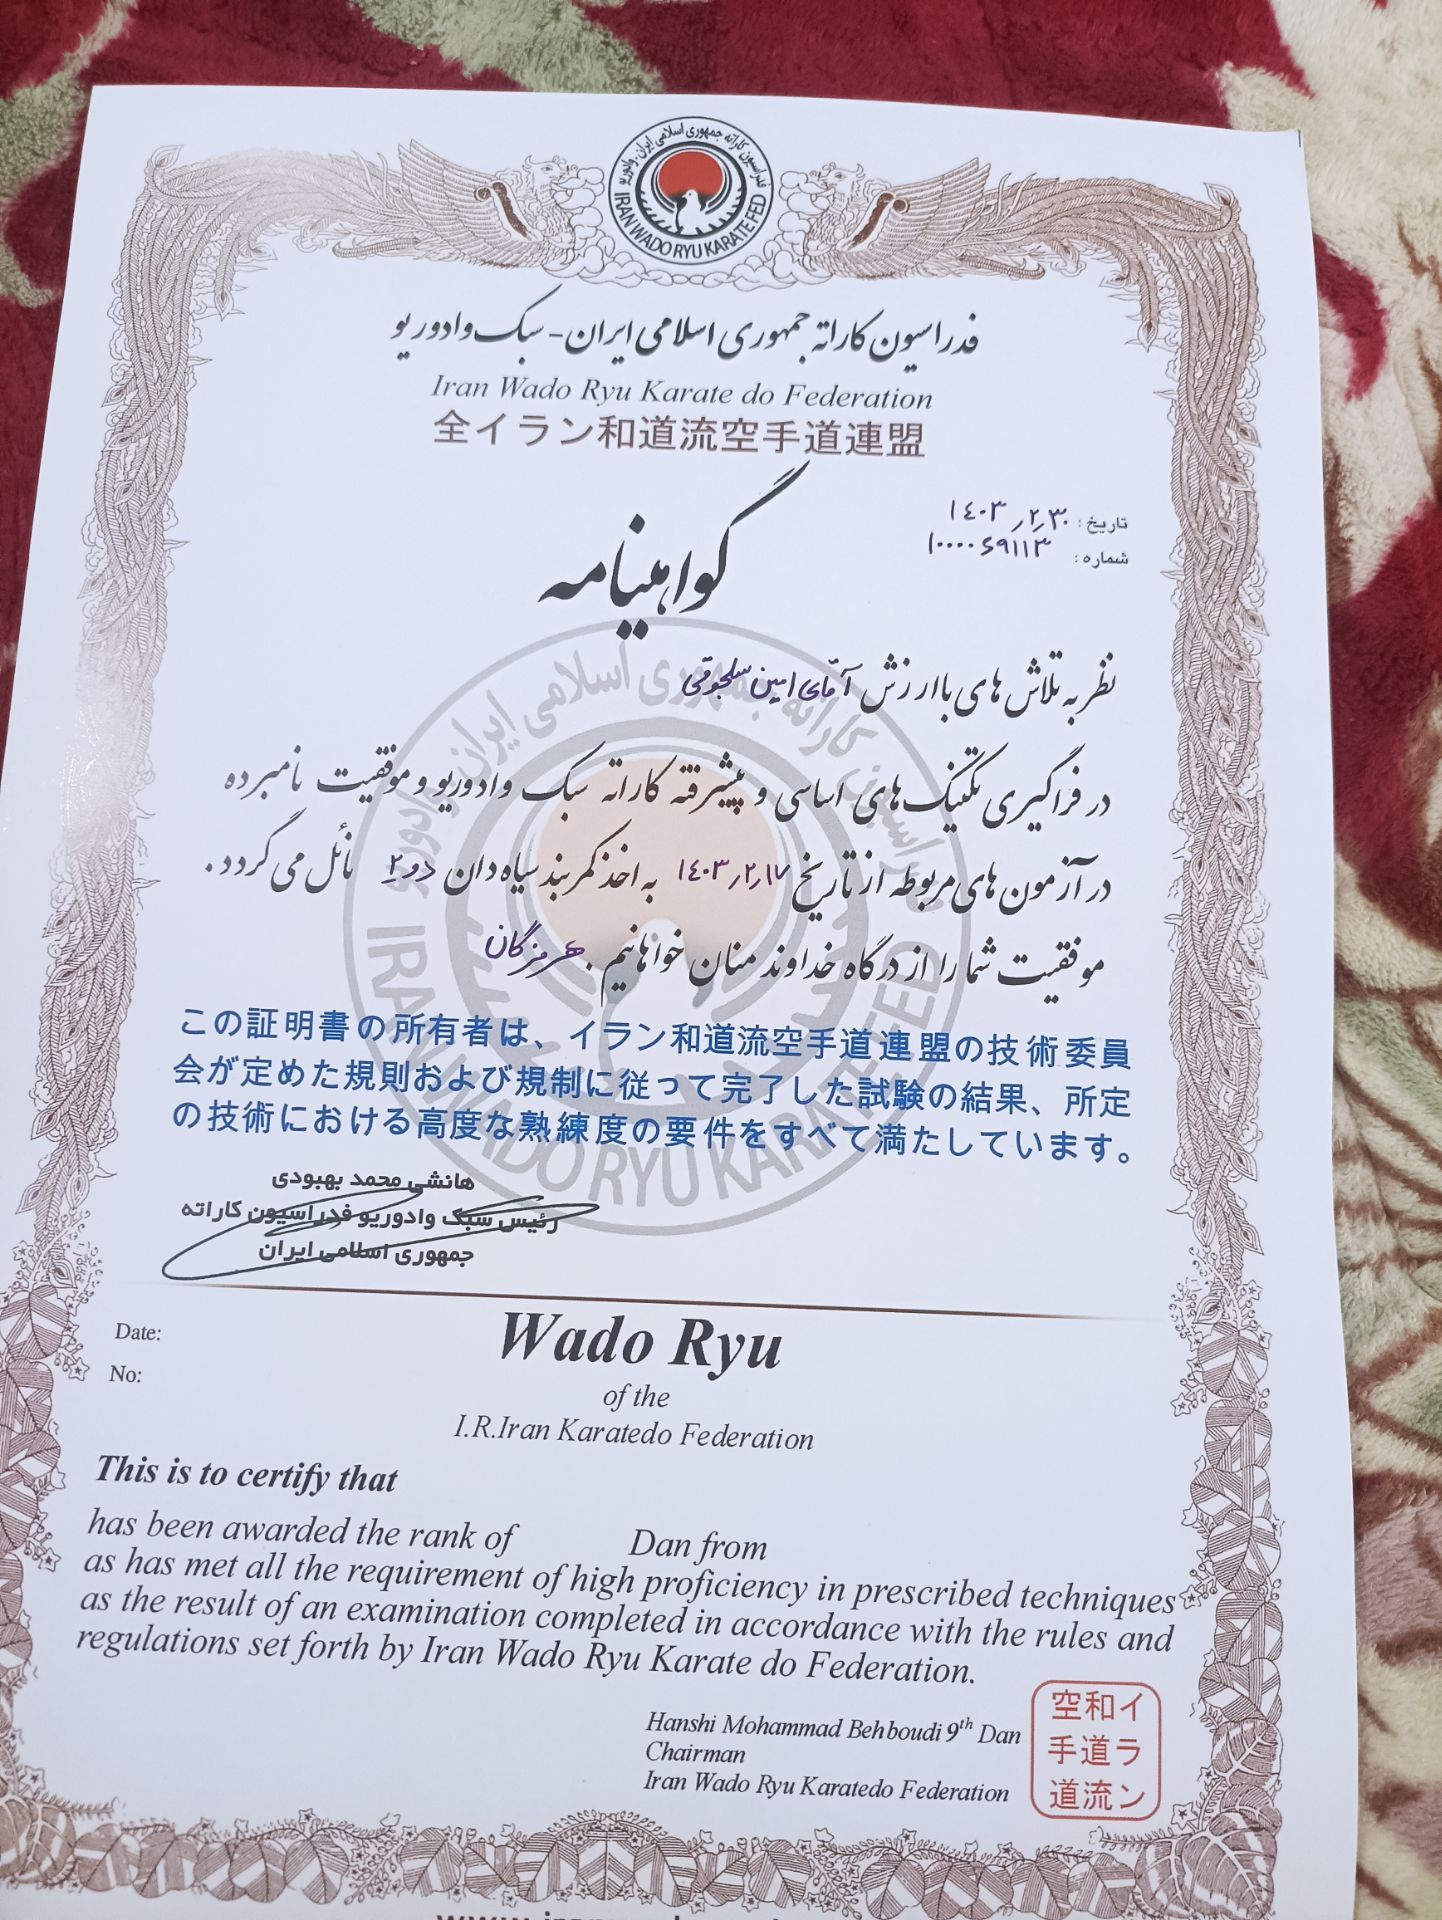 فدراسیون کاراته جمهوری اسلامی ایران . وادوریو
IRAN WADO RYU KARATE FED
فدراسیون کاراته جمهوری اسلامی ایران - سبک وادوریو
Iran Wado Ryu Karate do Federation
全イラン和道流空手道連盟
تاریخ: ۱۴۰۳٫۲٫۳۰
شماره: ۱۰۰۰۰۶۹۱۱۳
گواهینامه
نظر به تلاش های با ارزش آقای امین سلجوقی
در فراگیری تکنیک های اساسی و پیشرفته کاراته سبک وادوریو و موفقیت نامبرده
در آزمون های مربوطه از تاریخ ۱۴۰۳٫۲٫۱۷ به اخذ کمربند سیاه دان دو ۲ نائل می گردد .
موفقیت شما را از درگاه خداوند منان خواهانیم . هرمزگان
فدراسیون کاراته جمهوری اسلامی ایران وادوریو
IRAN WADO RYU KARATE FED
この証明書の所有者は、イラン和道流空手道連盟の技術委員
会が定めた規則および規制に従って完了した試験の結果、所定
の技術における高度な熟練度の要件をすべて満たしています。
هانشی محمد بهبودی
رئیس سبک وادوریو فدراسیون کاراته
جمهوری اسلامی ایران
Date:
No:
Wado Ryu
of the
I.R.Iran Karatedo Federation
This is to certify that
has been awarded the rank of Dan from
as has met all the requirement of high proficiency in prescribed techniques
as the result of an examination completed in accordance with the rules and
regulations set forth by Iran Wado Ryu Karate do Federation.
Hanshi Mohammad Behboudi 9th Dan
Chairman
Iran Wado Ryu Karatedo Federation
イラン
和道流
空手道